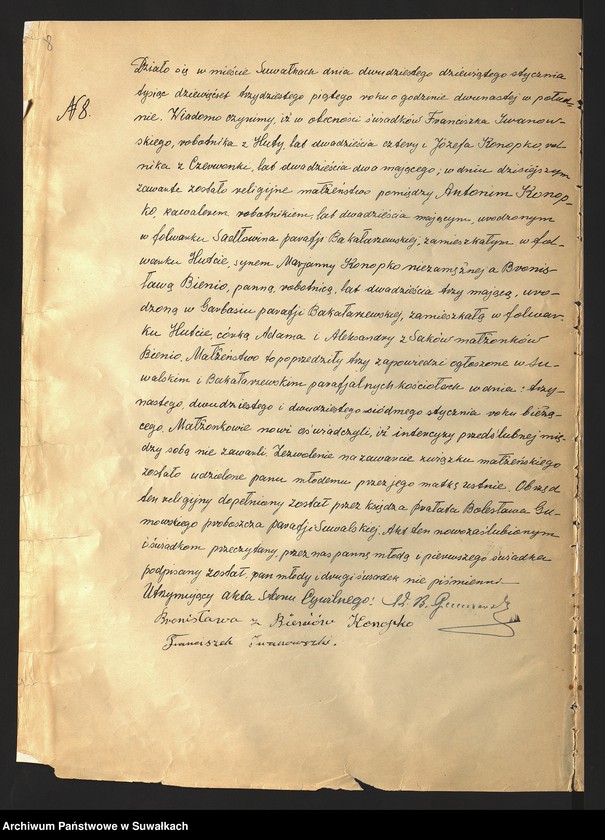 8
Działo się w mieście Suwałkach dnia dwudziestego dziewiątego stycznia
№ 8.
tysiąc dziewięćset trzydziestego piątego roku o godzinie dwunastej w połud-
nie. Wiadomo czynimy, iż w obecności świadków Franciszka Iwanow-
skiego, robotnika z Huty, lat dwadzieścia cztery i Józefa Konopko, rol-
nika z Czerwonki, lat dwadzieścia dwa mającego, w dniu dzisiejszym
zawarte zostało religijne małżeństwo pomiędzy Antonim Konop-
ko, kawalerem robotnikiem, lat dwadzieścia mającym, urodzonym
w folwarku Sadłowina parafji Bakałarzewskiej, zamieszkałym w fol-
warku Hutcie, synem Marjanny Konopko niezamężnej a Bronis-
ławą Bienio, panną, robotnicą, lat dwadzieścia trzy mającą, uro-
dzoną w Garbasiu parafji Bakałarzewskiej, zamieszkałą w folwar-
ku Hutcie, córką Adama i Aleksandry z Saków małżonków
Bienio. Małżeństwo to poprzedziły trzy zapowiedzi ogłoszone w Su-
walskim i Bakałarzewskim parafjalnych kościołach w dnia: trzy-
nastego, dwudziestego i dwudziestego siódmego stycznia roku bieżą-
cego. Małżonkowie nowi oświadczyli, iż intercyzy przedślubnej mię-
dzy sobą nie zawarli. Zezwolenie na zawarcie związku małżeńskiego
zostało udzielone panu młodemu przez jego matkę ustnie. Obrzęd
ten religijny dopełniony został przez księdza prałata Bolesława Gu-
mowskiego proboszcza parafji Suwalskiej. Akt ten nowozaślubionym
i świadkom przeczytany, przez nas pannę młodą i pierwszego świadka
podpisany został, pan młody i drugi świadek nie piśmienni.
Utrzymujący Akta Stanu Cywilnego: X. B. Gumowski
Bronisława z Bieniów Konopko
Franciszek Iwanowski.
Archiwum Państwowe w Suwałkach